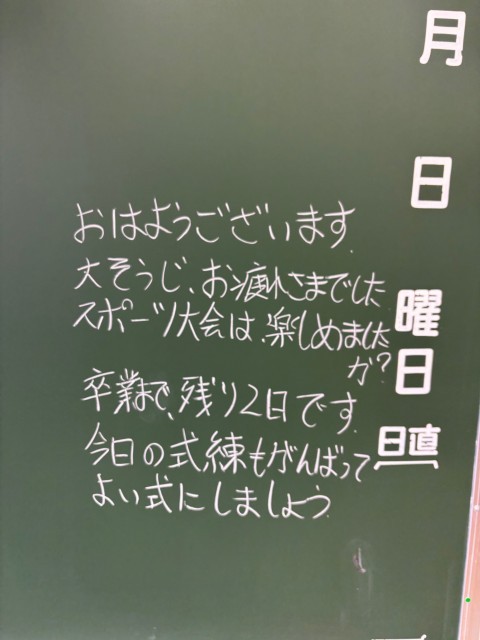 おはようございます。
大そうじ、お疲れさまでした
スポーツ大会は、楽しめました
か?
卒業まで、残り2日です。
今日の式練もがんばって
よい式にしましょう。
月
日
曜
日
日直